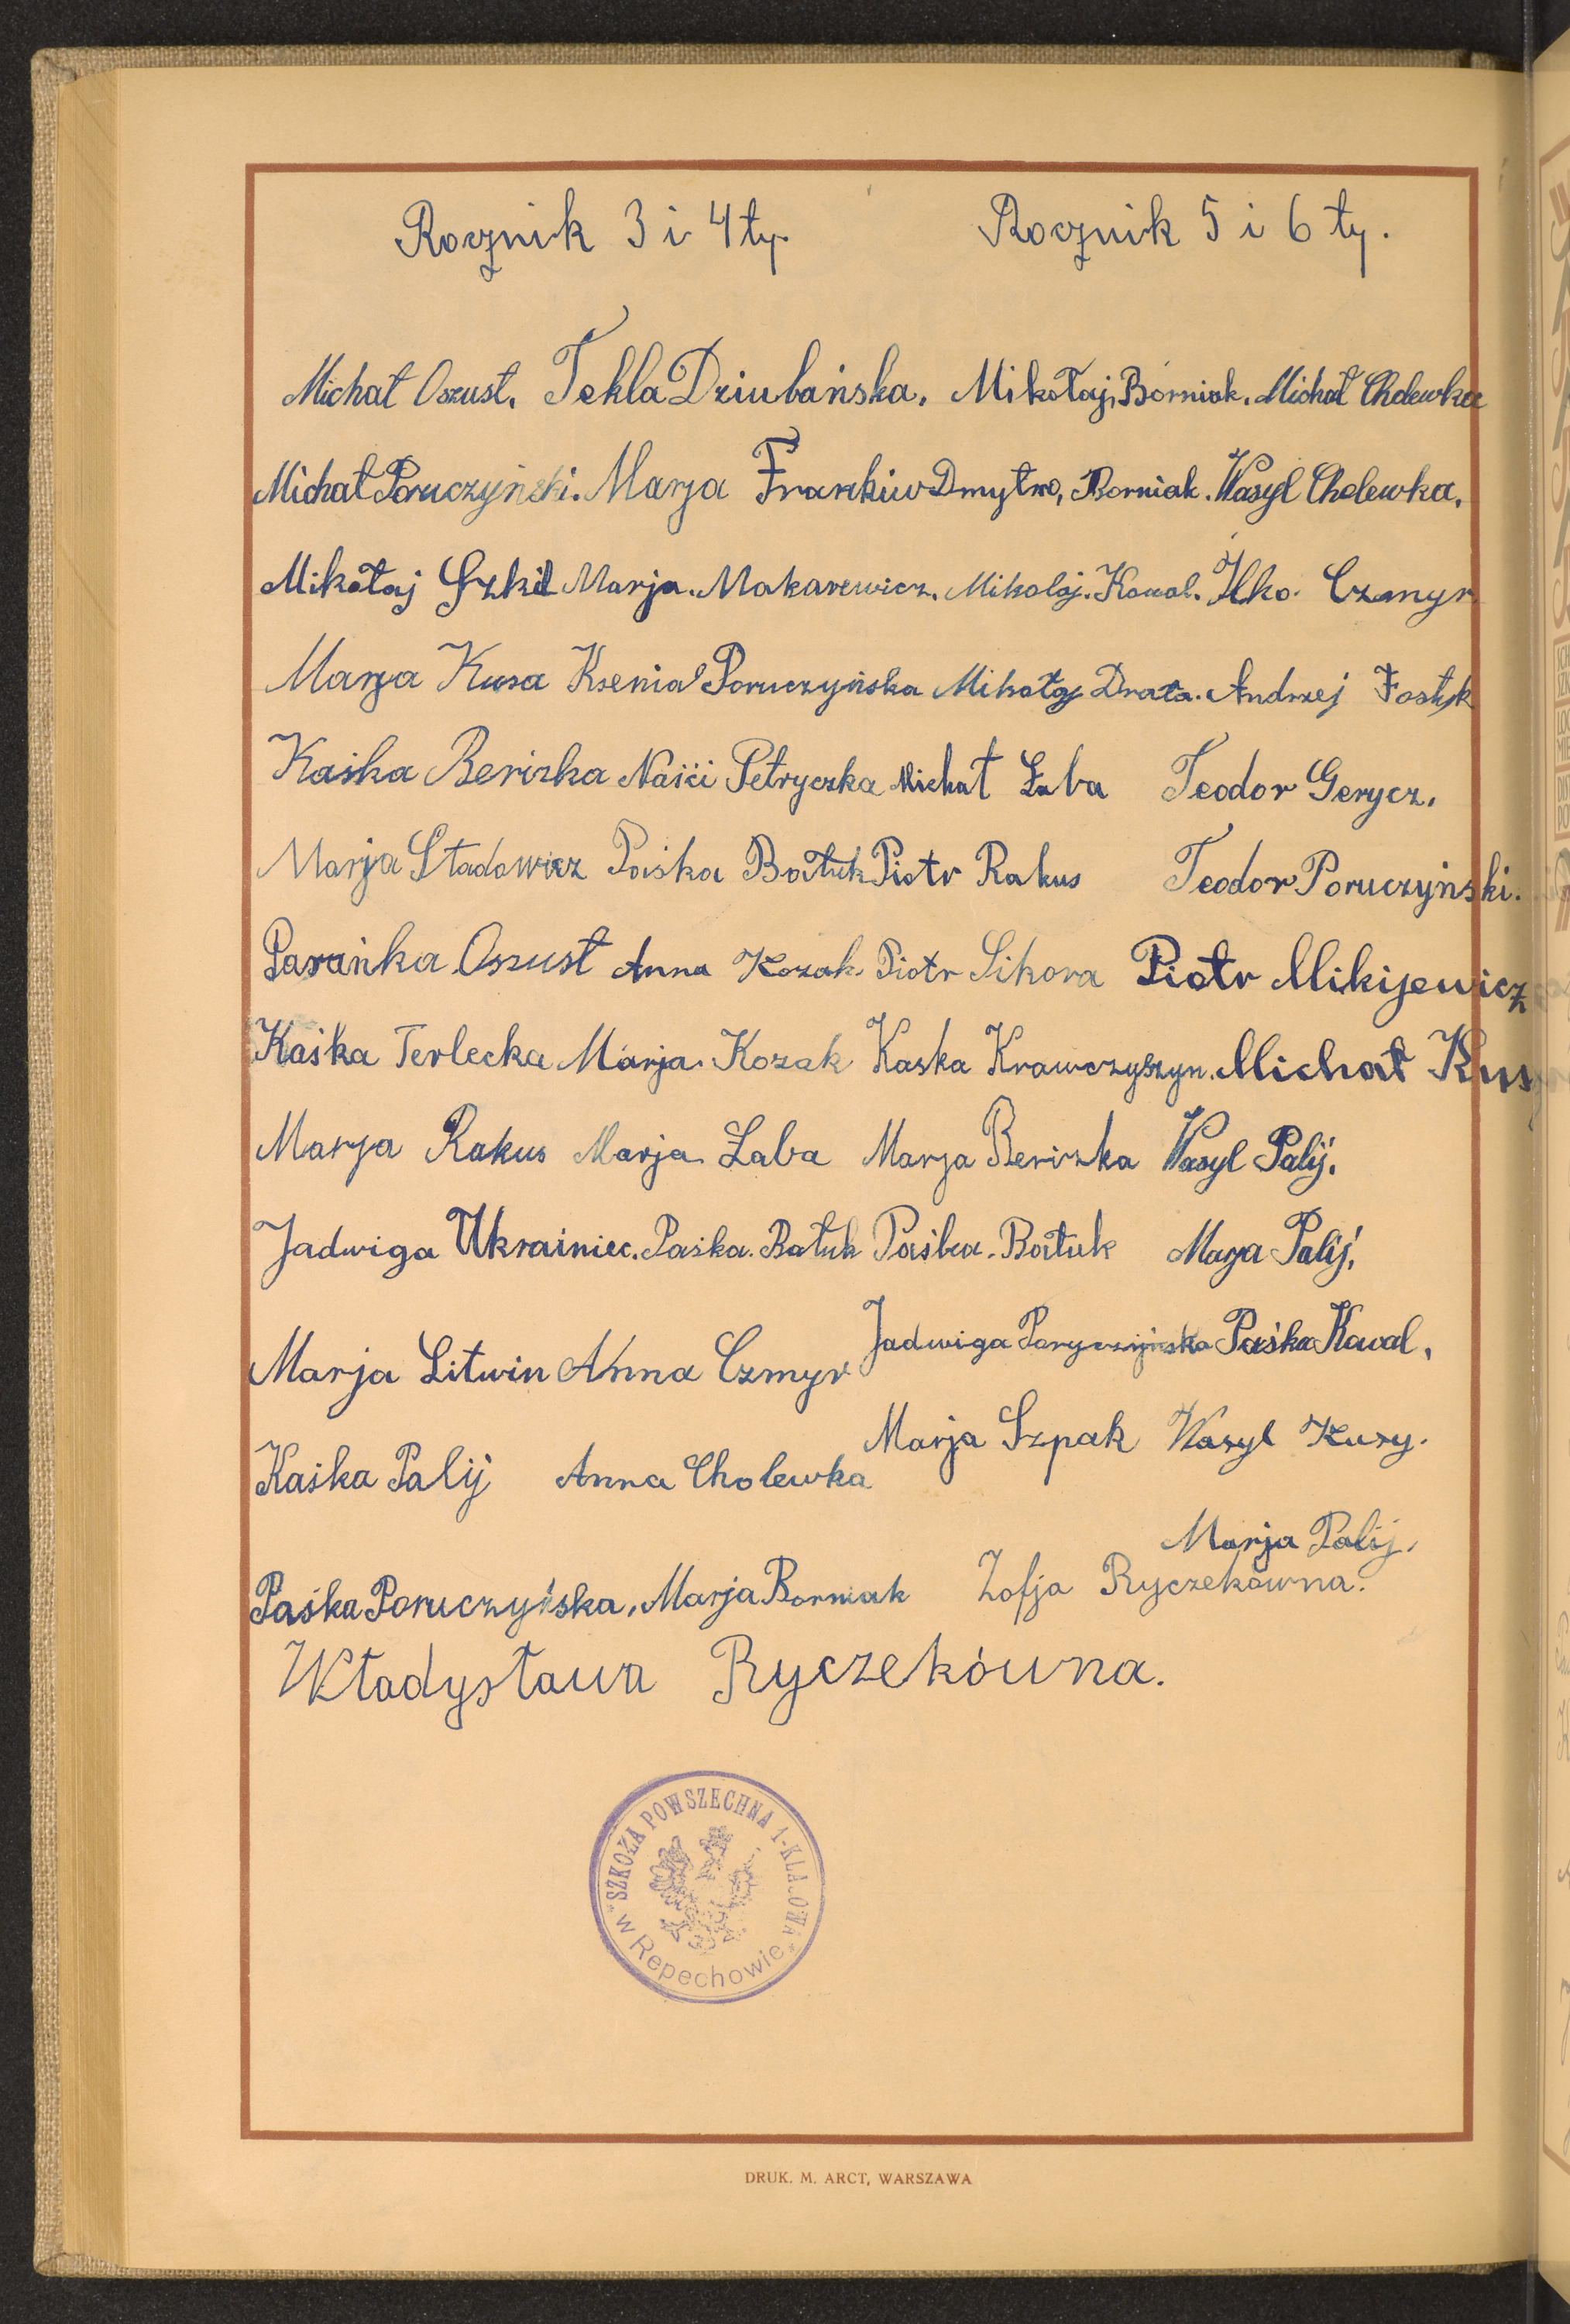 Rocznik 3 i 4ty. Rocznik 5 i 6 ty.
Michał Oszust. Tekla Dziubańska. Mikołaj Borniak. Michał Cholewka
Michał Poruczyński. Marja Frankiw Dmytro, Borniak. Wasyl Cholewka.
Mikołaj Szkil Marja. Makarewicz. Mikolaj. Kowal. Ilko. Czmyr
Marja Kusa Ksenia Poruczyńska Mikołaj Drata. Andrzej Fostyk
Kaśka Beriszka Petryczka Michał Łaba Teodor Gerycz.
Marja Stadowicz Paśka Bałuk Piotr Rakus Teodor Poruczyński.
Parańka Oszust Anna Kozak Piotr Sikora Piotr Mikijewicz
Kaśka Terlecka Marja. Kozak Kaska Krawczyszyn. Michał Kusy
Marja Rakus Marja Łaba Marja Beriszka Wasyl Palij.
Jadwiga Ukrainiec. Paśka. Bałuk Paśka. Bałuk Marja Palij.
Marja Litwin Anna Czmyr Jadwiga Paśka Kowal.
Kaśka Palij Anna Cholewka Marja Szpak Wasyl Kusy.
Marja Palij.
Paśka Poruczyńska. Marja Borniak Zofja Ryczekówna.
Władysława Ryczekówna.
"SZKOŁA POWSZECHNA 1-KLASOWA"
w Repechowie
DRUK. M. ARCT, WARSZAWA